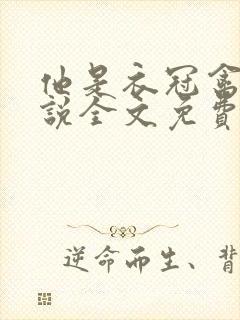 他是衣冠禽
说全文免费
逆命而生、背